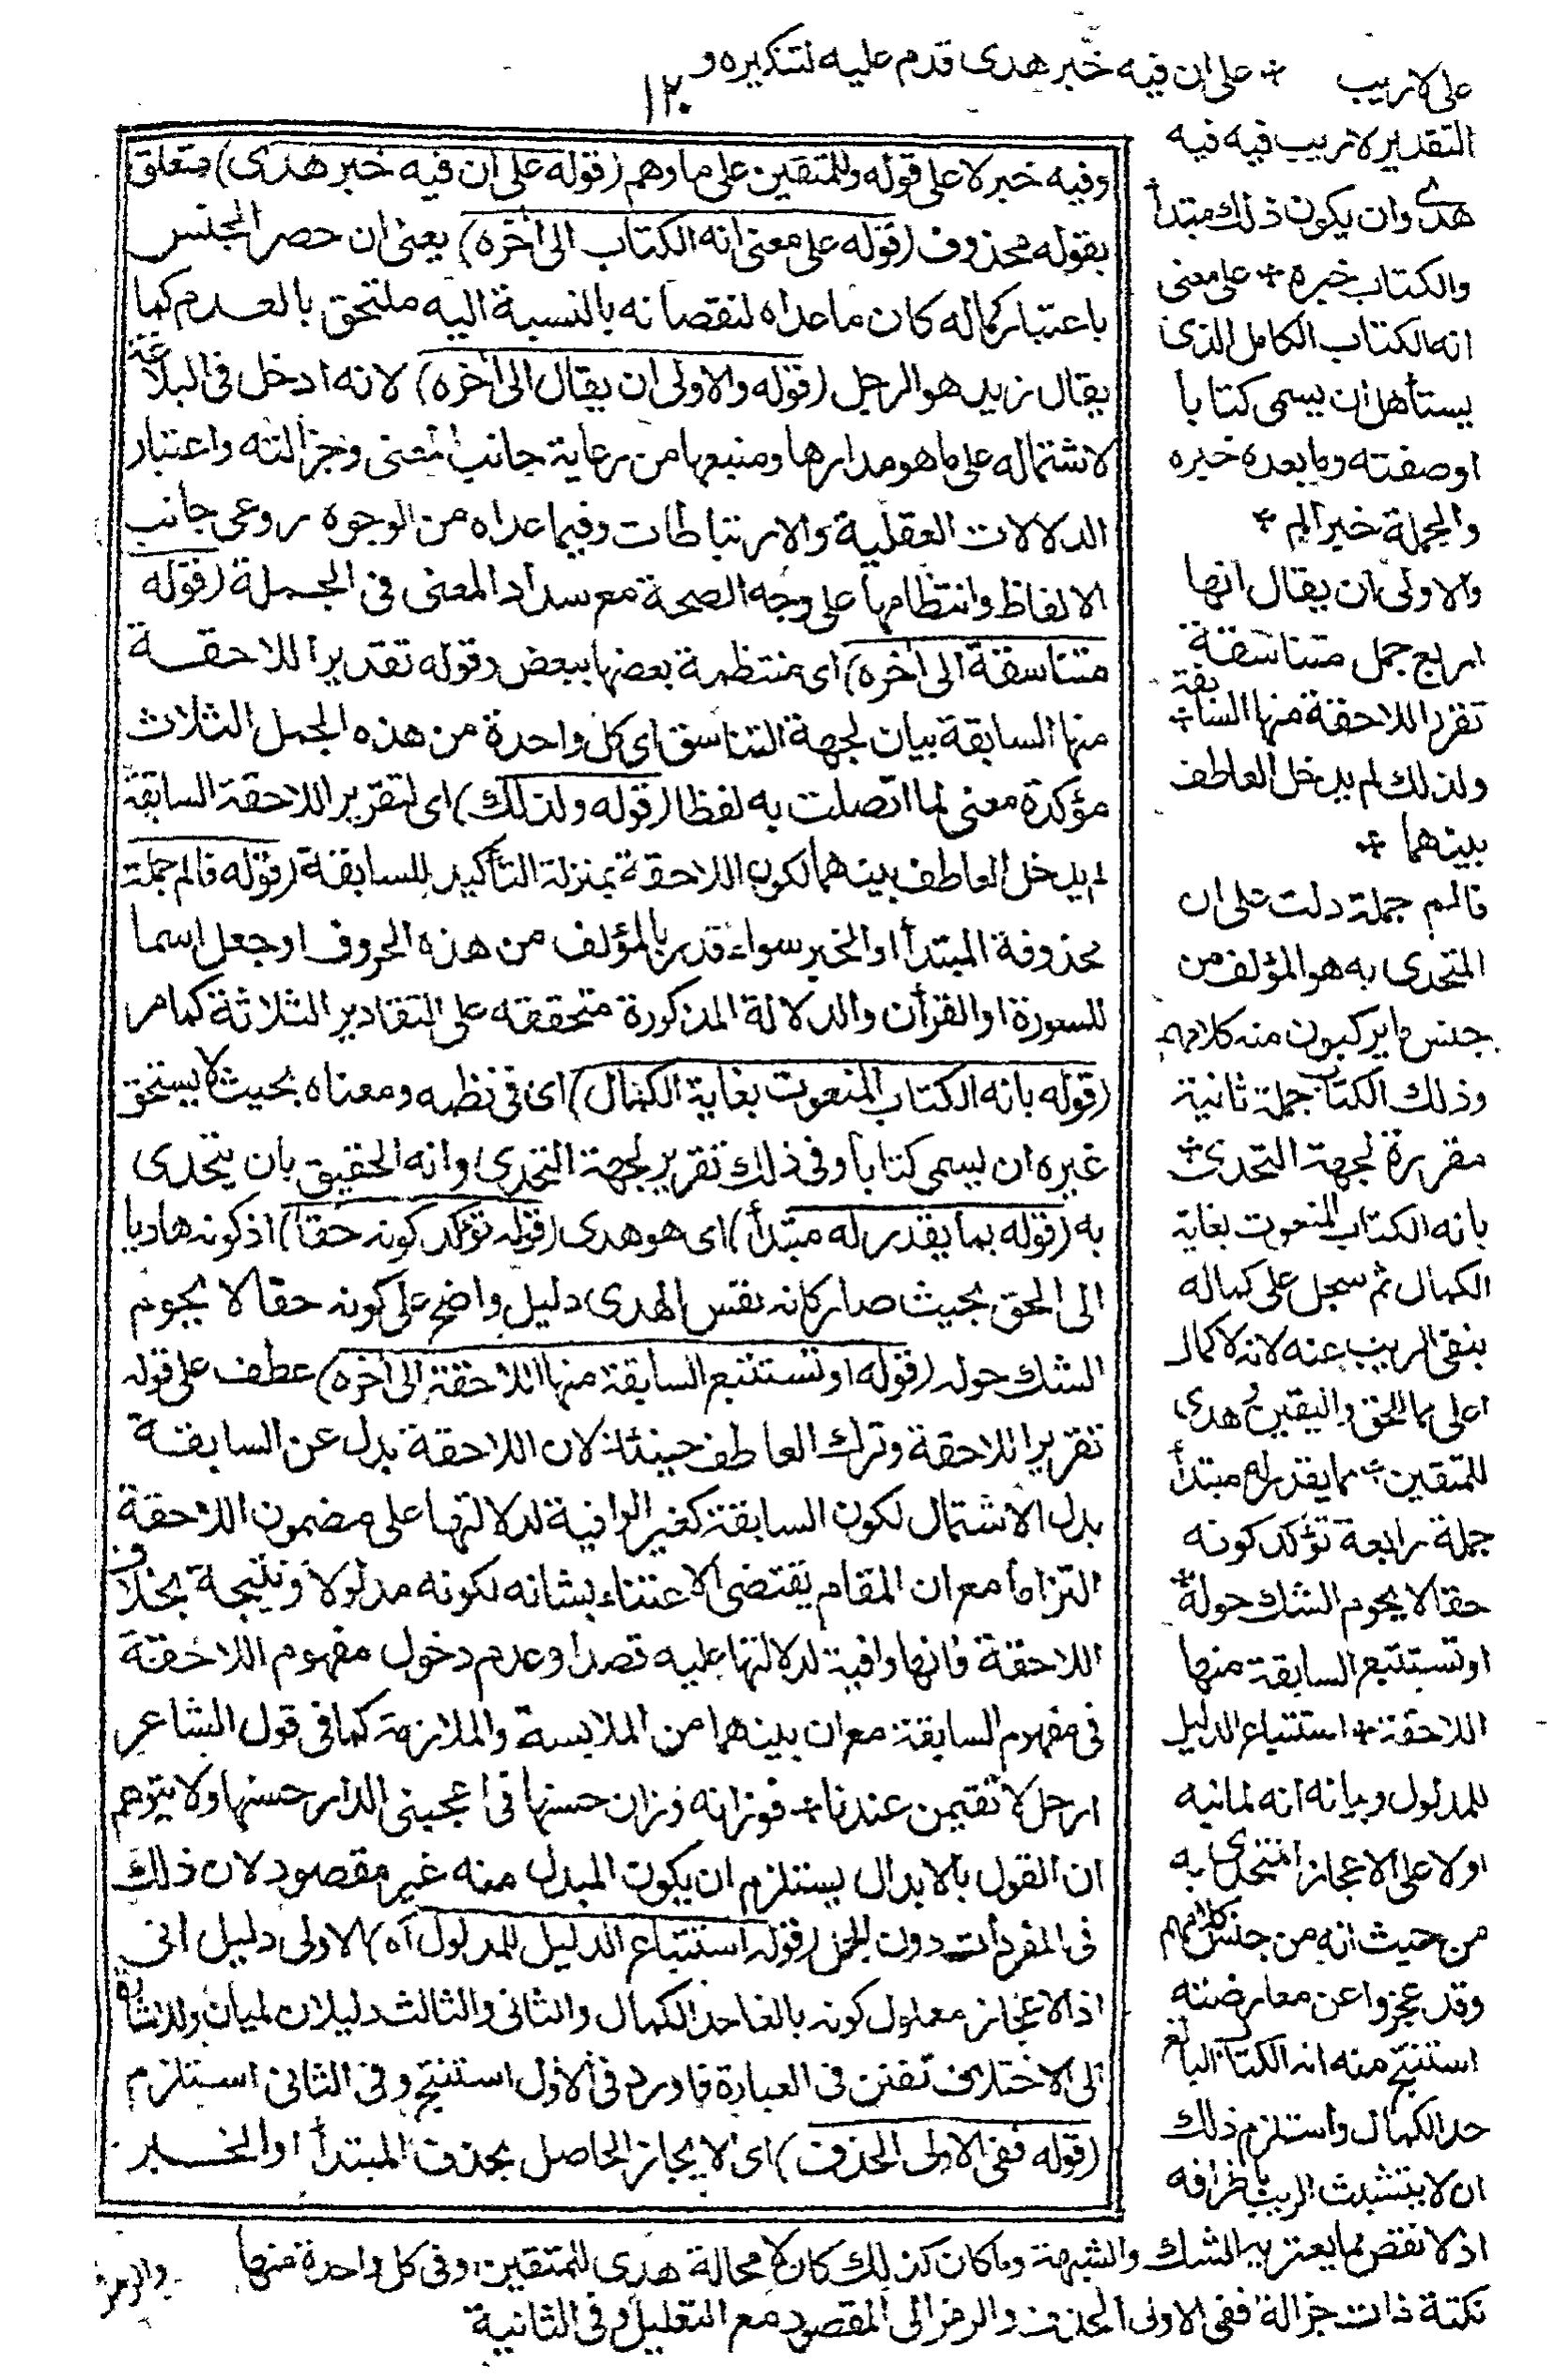 على لا ريب * على ان فيه خبر هدى قدم عليه لتنكيره و
١٢٠
التقدير لا ريب فيه فيه
هدى وان يكون ذلك مبتدأ
والكتاب خبره * على معنى
انه الكتاب الكامل الذى
يستأهل ان يسمى كتابا
او صفته وما بعده خبره
والجملة خبر الم *
والاولى ان يقال انها
اربع جمل متناسقة
تقرر اللاحقة منها السابقة *
ولذلك لم يدخل العاطف
بينهما *
فالم جملة دلت على ان
المتحدى به هو المؤلف من
جنس ما يركبون منه كلامهم
وذلك الكتاب جملة ثانية
مقررة لجهة التحدى *
بانه الكتاب المنعوت بغاية
الكمال ثم سجل على كماله
بنفى الريب عنه لانه لا كمال
اعلى مما للحق واليقين وهدى
للمتقين * بما يقدر له مبتدأ
جملة رابعة تؤكد كونه
حقا لا يحوم الشك حوله *
او تستتبع السابقة منها
اللاحقة * استتباع الدليل
للمدلول وبيانه انه لما نبه
اولا على الاعجاز المتحدى به
من حيث انه من جنس كلامهم
وقد عجزوا عن معارضته
استنتج منه انه الكتاب البالغ
حد الكمال واستلزم ذلك
ان لا يتشبث الريب باطرافه
اذ لا نقص مما يعتريه الشك والشبهة وما كان كذلك كان لا محالة هدى للمتقين وفى كل واحدة منها
نكتة ذات جزالة ففى الاولى الحذف والرمز الى المقصود مع التعليل وفى الثانية
وفيه خبر لا على قوله وللمتقين على ما وهم (قوله على ان فيه خبر هدى) متعلق
بقوله محذوف (قوله على معنى انه الكتاب الى آخره) يعنى ان حصر الجنس
باعتبار كماله كان ما عداه لنقصانه بالنسبة اليه ملتحق بالعدم كما
يقال زيد هو الرجل (قوله والاولى ان يقال الى آخره) لانه ادخل فى البلاغة
لاشتماله على ما هو مدارها ومنبعها من رعاية جانب المعنى وجزالته واعتبار
الدلالات العقلية والارتباطات وفيما عداه من الوجوه روعى جانب
الالفاظ وانتظامها على وجه الصحة مع سداد المعنى فى الجملة (قوله
متناسقة الى آخره) اى منتظمة بعضها ببعض وقوله تقدير اللاحقة
منها السابقة بيان لجهة التناسق اى كل واحدة من هذه الجمل الثلاث
مؤكدة معنى لما اتصلت به لفظا (قوله ولذلك) اى لتقرير اللاحقة السابقة
لم يدخل العاطف بينهما لكون اللاحقة بمنزلة التأكيد للسابقة (قوله فالم جملة
محذوفة المبتدأ او الخبر سواء قدر بالمؤلف من هذه الحروف او جعل اسما
للسورة او القرآن والدلالة المذكورة متحققة على التقادير الثلاثة كما مر
(قوله بانه الكتاب المنعوت بغاية الكمال) اى فى نظمه ومعناه بحيث لا يستحق
غيره ان يسمى كتابا وفى ذلك تقرير لجهة التحدى وانه الحقيق بان يتحدى
به (قوله بما يقدر له مبتدأ) اى هو هدى (قوله تؤكد كونه حقا) اذ كونه هاديا
الى الحق بحيث صار كانه نفس الهدى دليل واضح على كونه حقا لا يحوم
الشك حوله (قوله او تستتبع السابقة منها اللاحقة الى آخره) عطف على قوله
تقرير اللاحقة وترك العاطف حينئذ لان اللاحقة بدل عن السابقة
بدل الاشتمال لكون السابقة كغير الوافية لدلالتها على مضمون اللاحقة
التزاما مع ان المقام يقتضى الاعتناء بشانه لكونه مدلولا ونتيجة بخلاف
اللاحقة فانها وافية لدلالتها عليه قصدا وعدم دخول مفهوم اللاحقة
فى مفهوم السابقة مع ان بينهما من الملابسة والملازمة كما فى قول الشاعر
ارحل لا تقيمن عندنا * فوزانه وزان حسنها فى اعجبنى الدار حسنها ولا يتوهم
ان القول بالابدال يستلزم ان يكون المبدل منه غير مقصود لان ذلك
فى المفردات دون الجمل (قوله استتباع الدليل للمدلول آه) الاولى دليل انى
اذ الاعجاز معلول كونه بالغا حد الكمال والثانى والثالث دليلان لميان وللاشارة
الى الاختلاف تفنن فى العبارة فاورد فى الاول استنتج وفى الثانى استلزم
(قوله ففى الاولى الحذف) اى الايجاز الحاصل بحذف المبتدأ او الخبر
والرمز